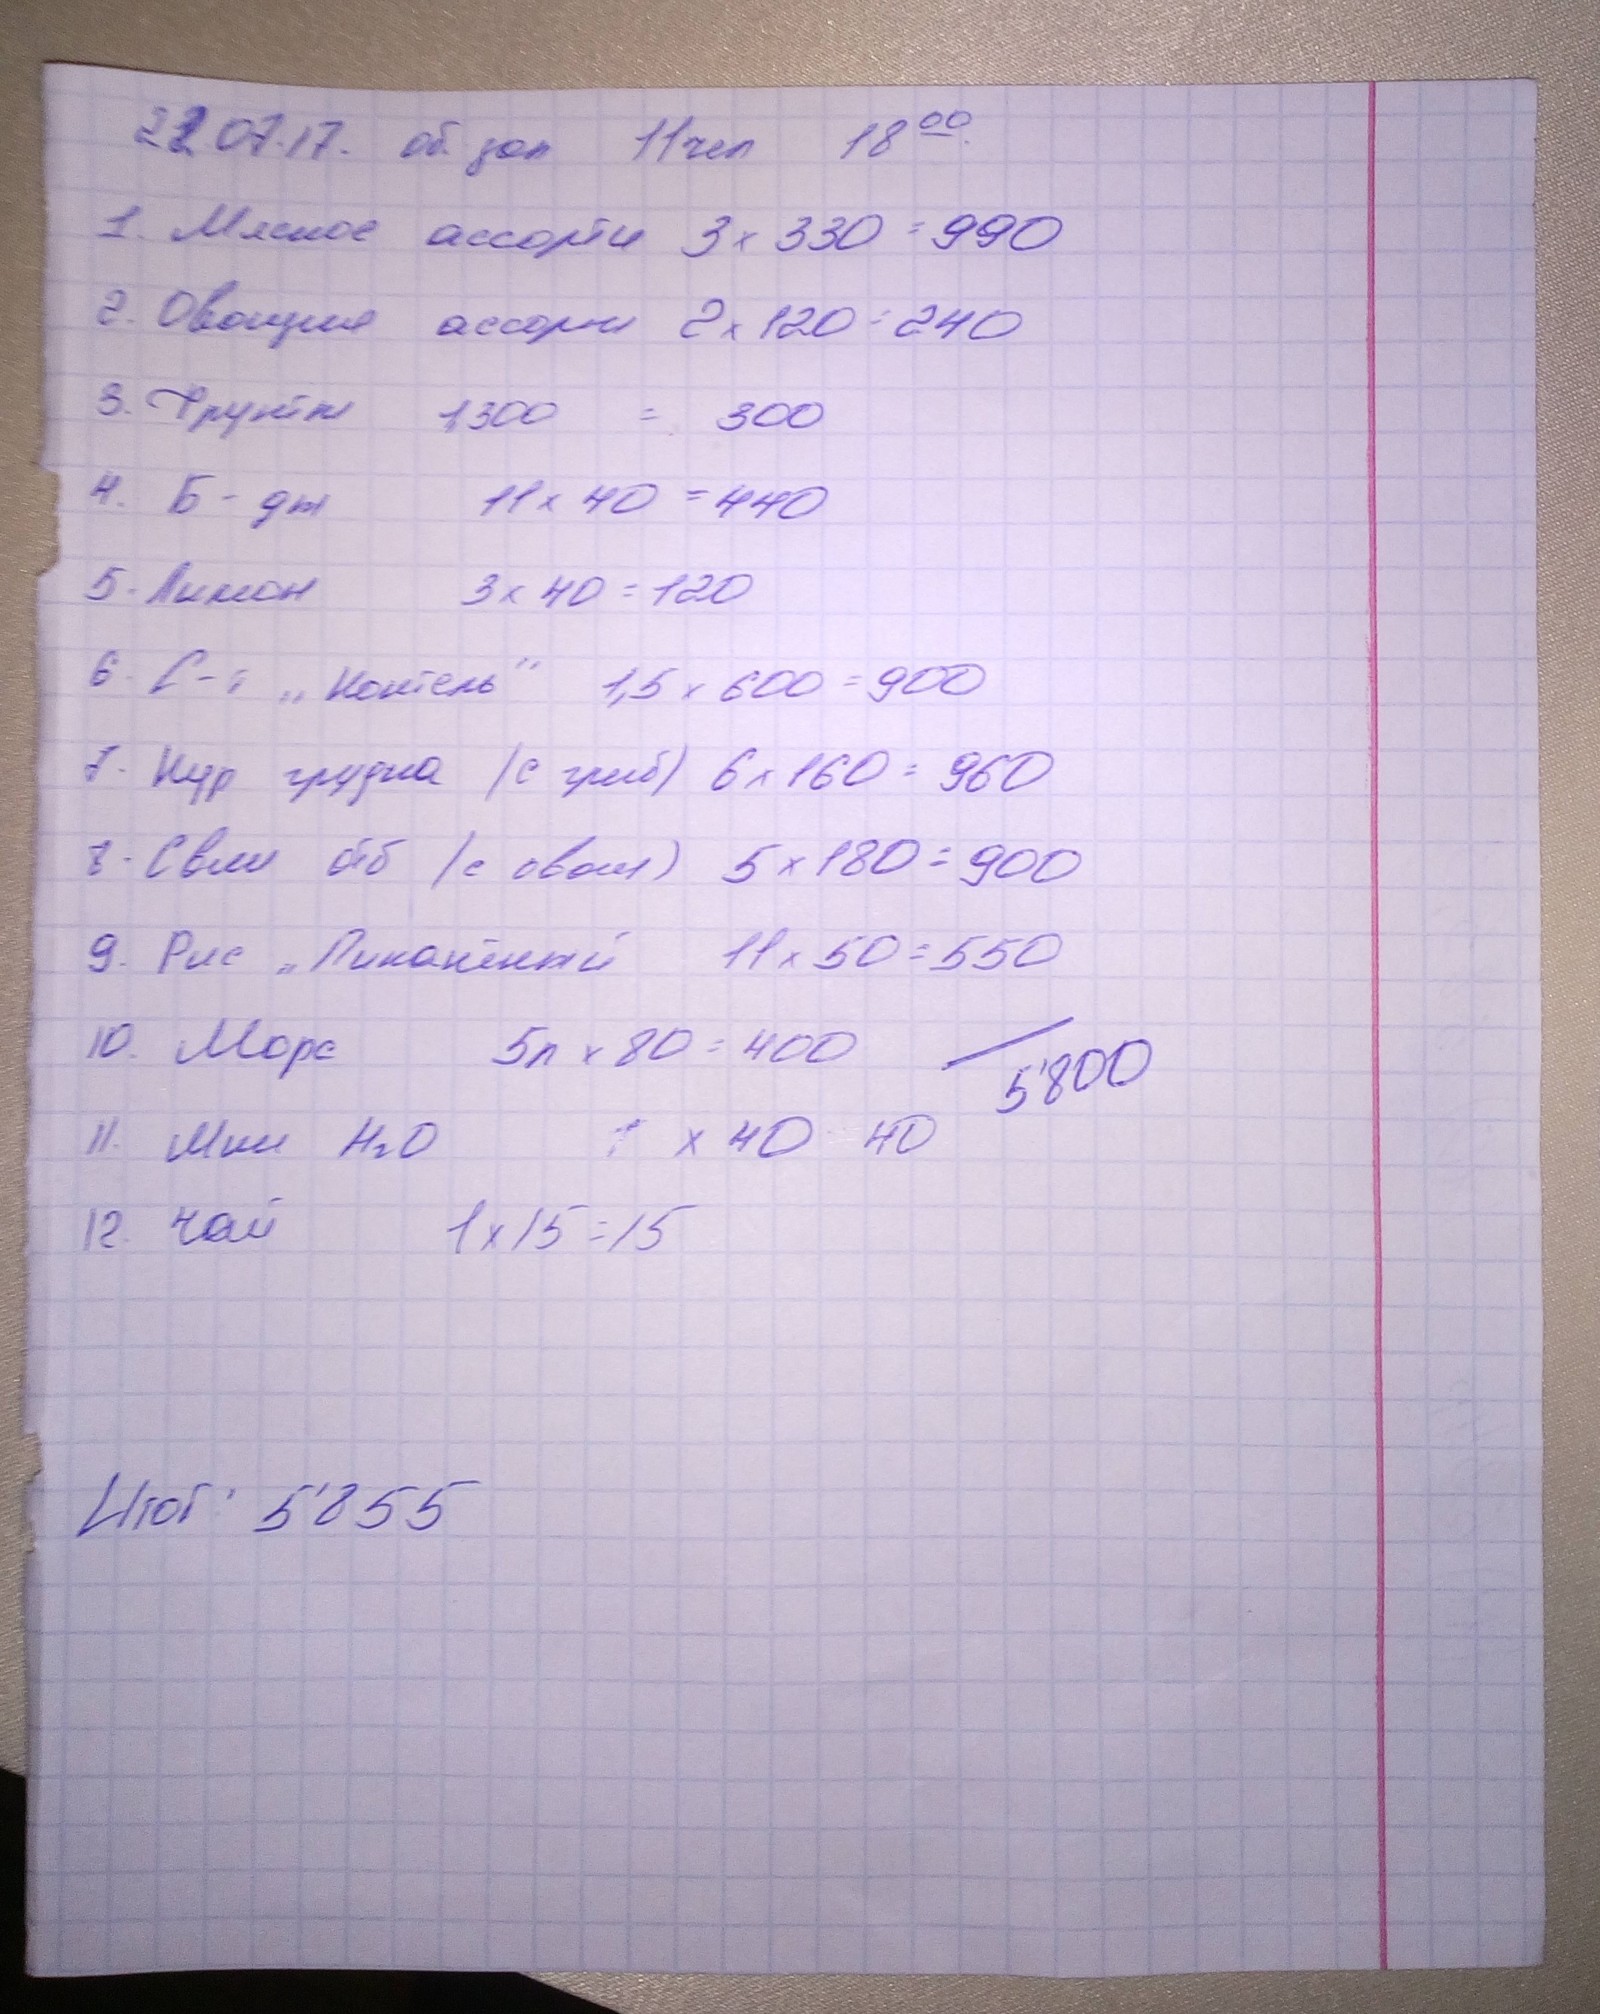 22 07.17. об. зал 11 чел 18 00
1. Мясное ассорти 3 x 330 = 990
2. Овощия ассорти 2 x 120 = 240
3. Фрукты 1,300 = 300
4. Б-ды 11 x 40 = 440
5. Лимон 3 x 40 = 120
6. С-т „Коктель" 1,5 x 600 = 900
7. Кур грудка (с гриб) 6 x 160 = 960
8. Свин отб (с овощ) 5 x 180 = 900
9. Рис „Пикантный 11 x 50 = 550
10. Морс 5л x 80 = 400
5'800
11. Мин H2O 1 x 40 40
12. Чай 1 x 15 = 15
Итог: 5'855